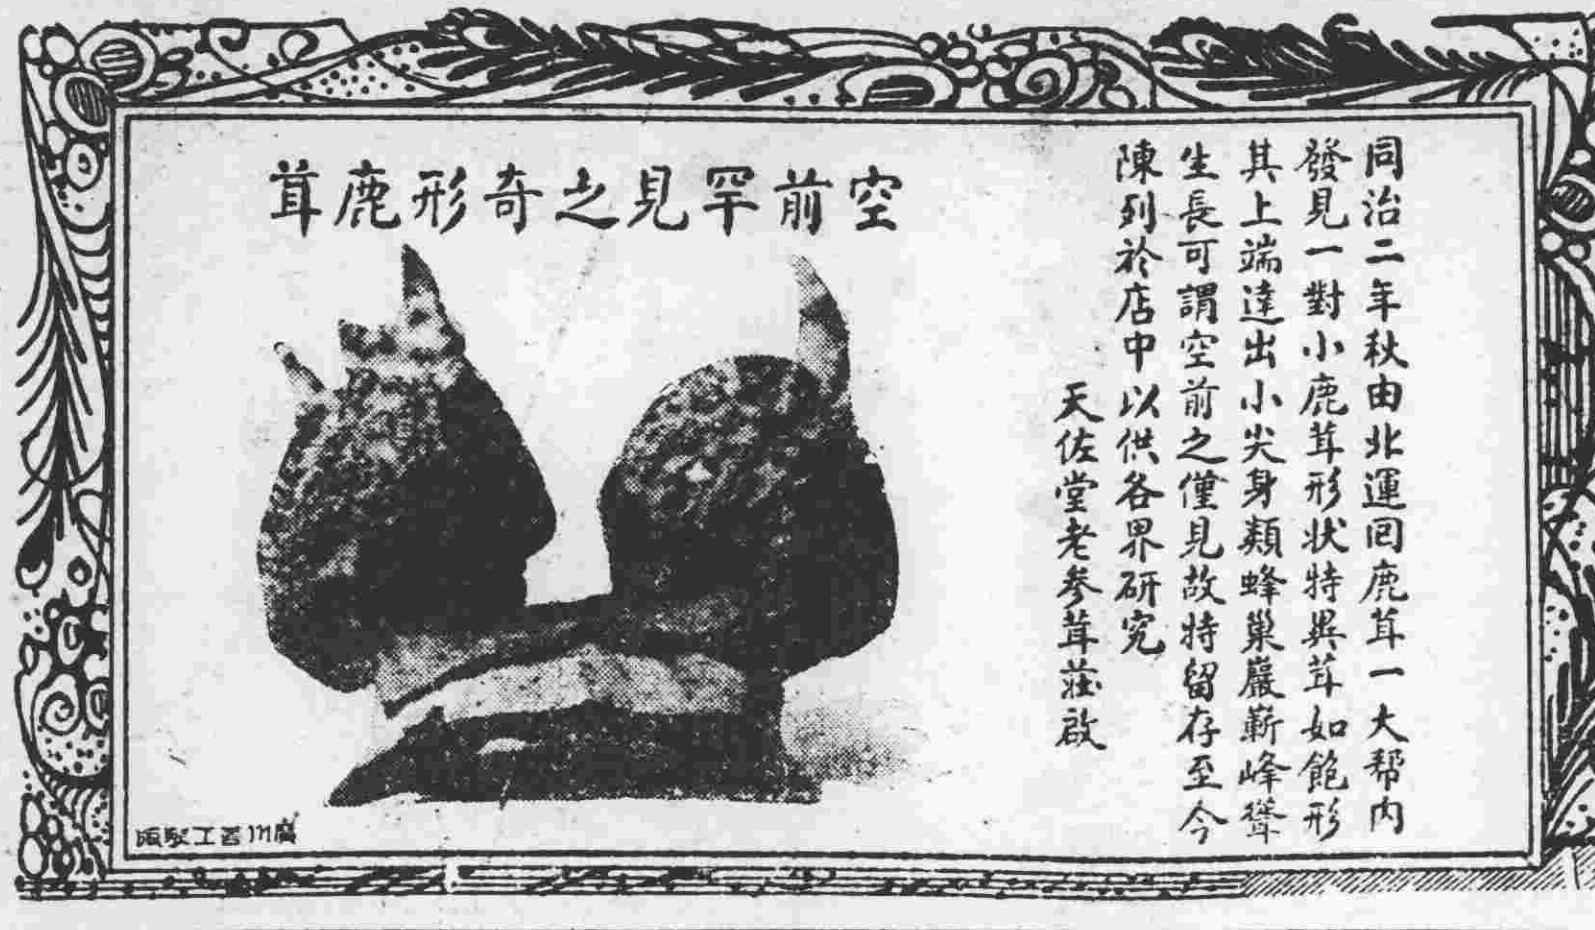 空前罕見之奇形鹿茸
同治二年秋由北運回鹿茸一大帮内
發見一對小鹿茸形狀特異茸如飽形
其上端達出小尖身類蜂巢巖嶄峰聳
生長可謂空前之僅見故特留存至今
陳列於店中以供各界研究
天佐堂老參茸莊啟
廣州